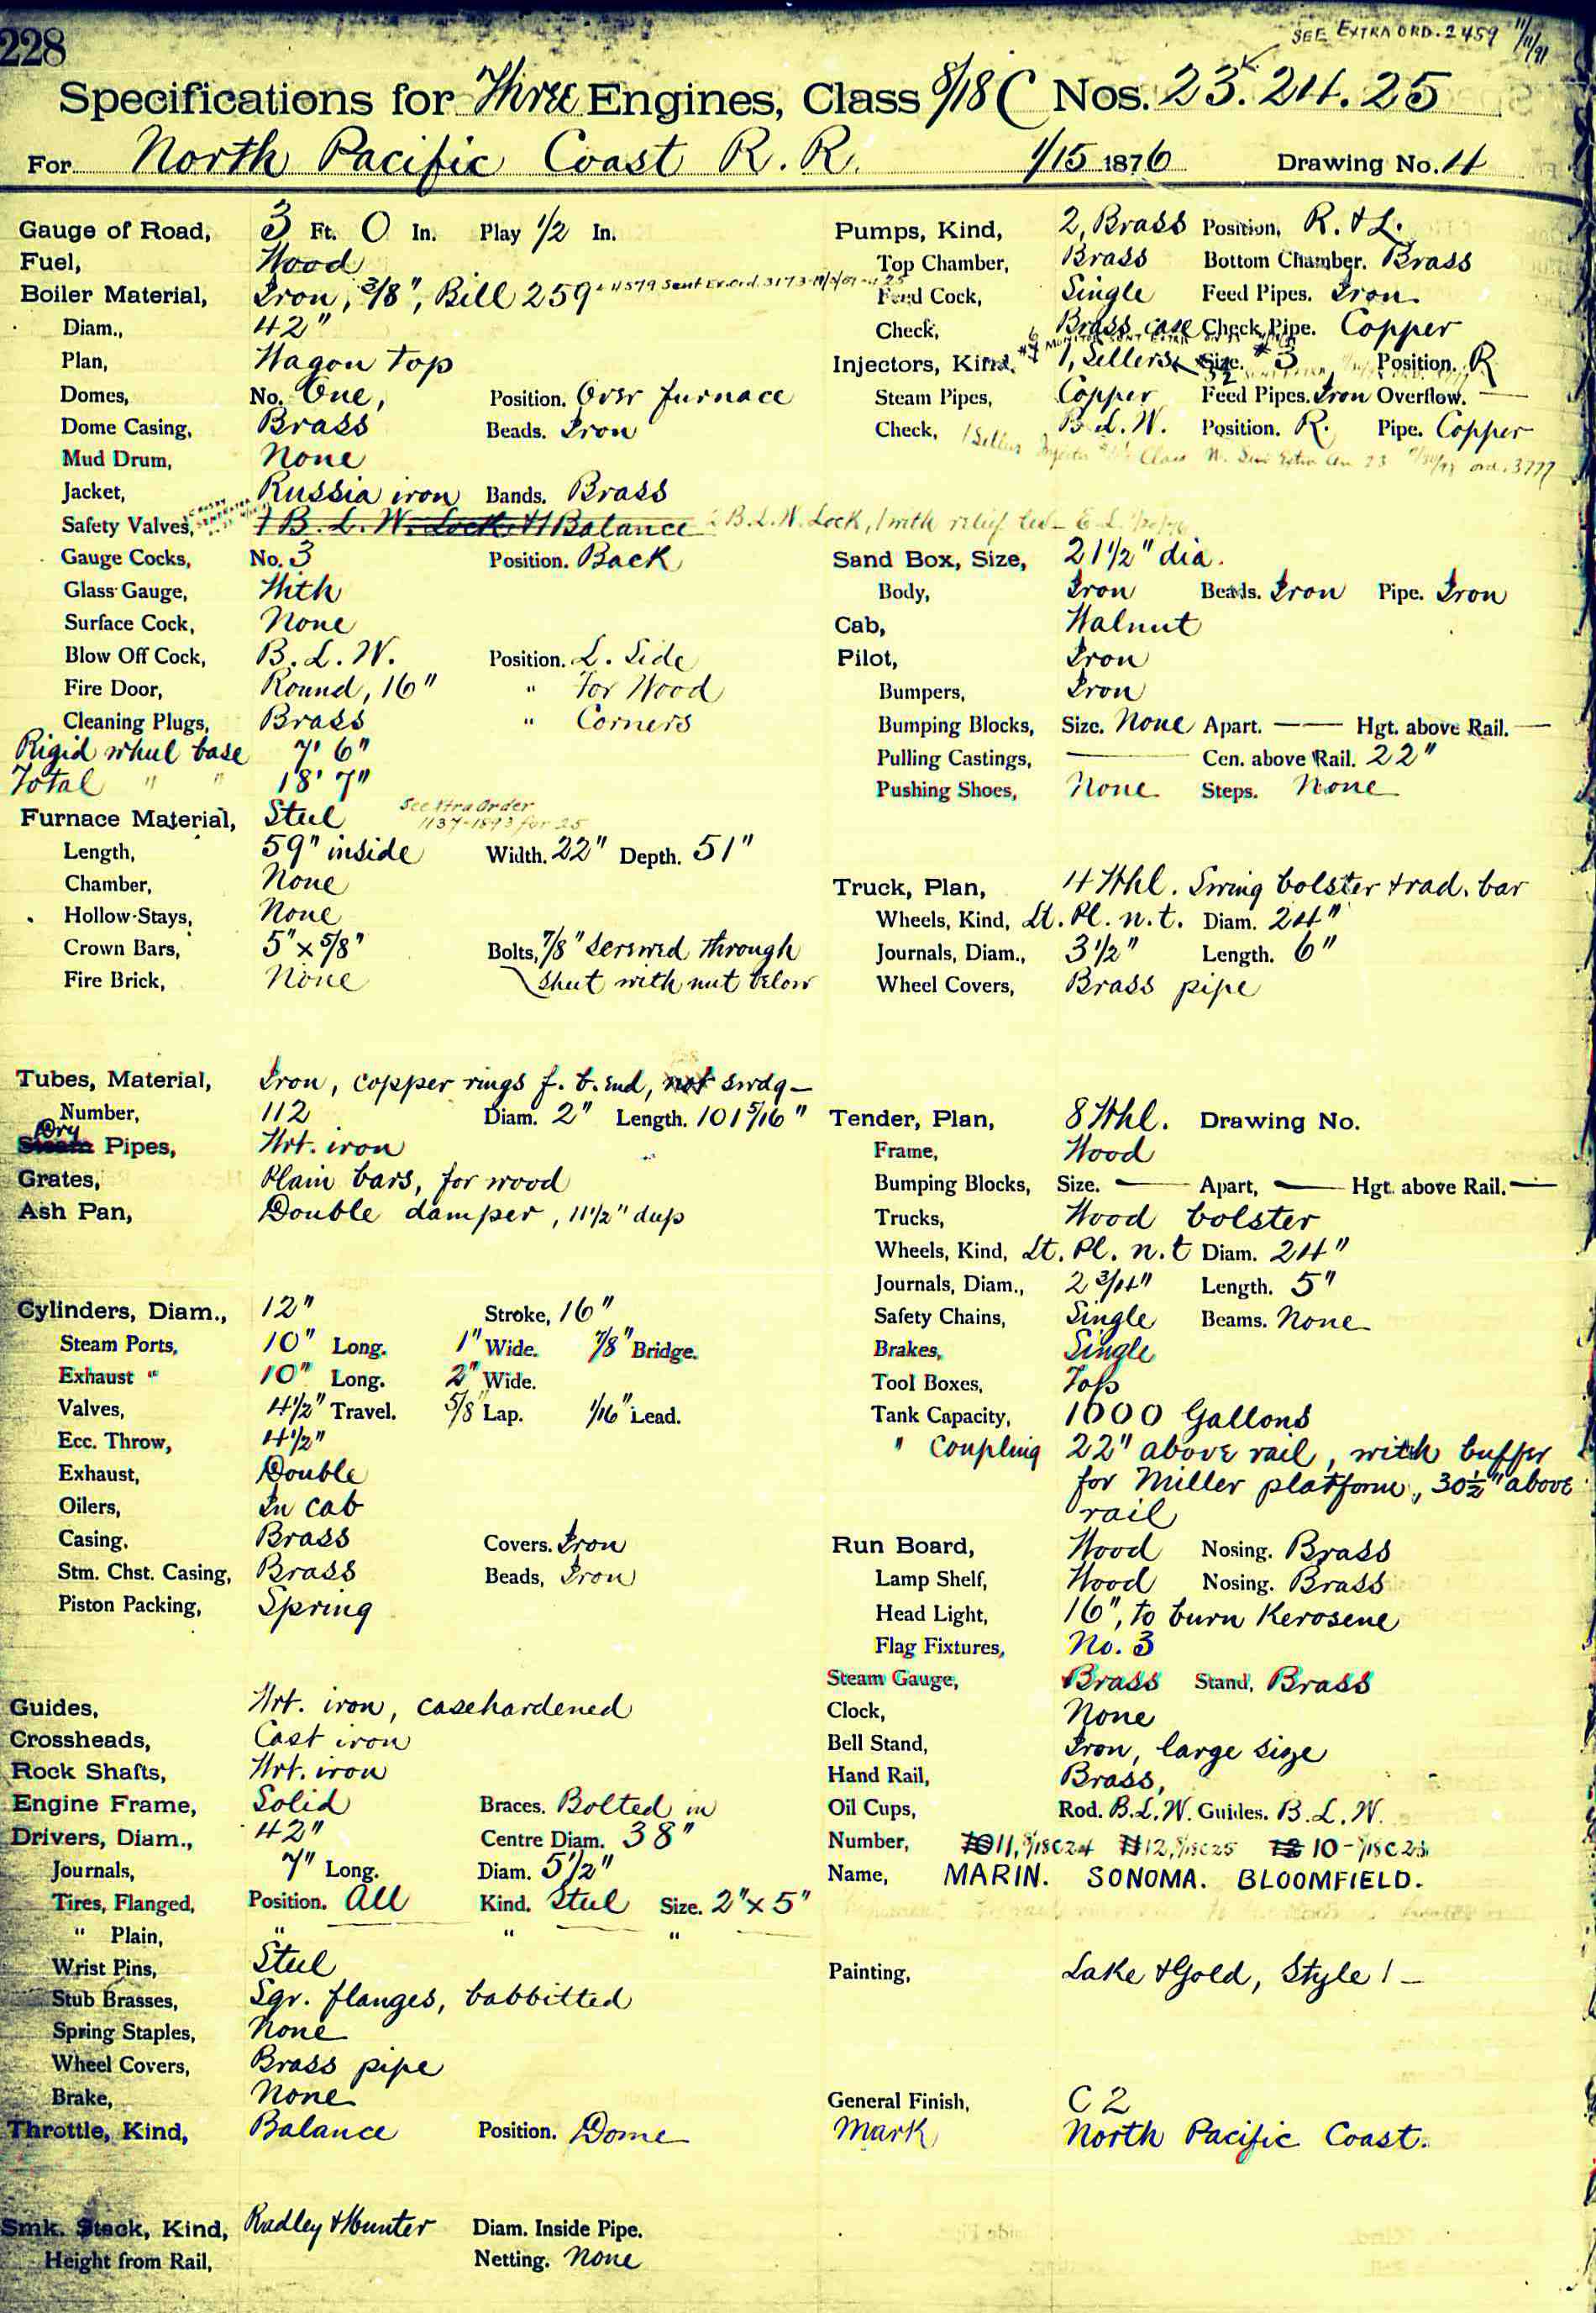 228
SEE EXTRA ORD. 2459 11/11/91
Specifications for Three Engines, Class 8/18 C Nos. 23. 24. 25
For North Pacific Coast R. R. 1/15 1876 Drawing No. 4
Gauge of Road, 3 Ft. 0 In. Play 1/2 In.
Fuel, Wood
Boiler Material, Iron, 3/8", Bill 259
Diam., 42"
Plan, Wagon top
Domes, No. One, Position. Over furnace
Dome Casing, Brass Beads. Iron
Mud Drum, None
Jacket, Russia iron Bands. Brass
Safety Valves, 1 B. L. W. Lock & 1 Balance 2 B.L.W. Lock, 1 with relief
Gauge Cocks, No. 3 Position. Back
Glass Gauge, With
Surface Cock, None
Blow Off Cock, B. L. W. Position. L. Side
Fire Door, Round, 16" " For Wood
Cleaning Plugs, Brass " Corners
Rigid wheel base 7' 6"
Total " " 18' 7"
Furnace Material, Steel See Xtra Order
1137-1893 for 25
Length, 59" inside Width. 22" Depth. 51"
Chamber, None
Hollow-Stays, None
Crown Bars, 5" x 5/8" Bolts, 7/8" screwed through
Fire Brick, None sheet with nut below
Tubes, Material, Iron, copper rings f. b. end, not swdg—
Number, 112 Diam. 2" Length. 101 5/16"
Dry
Steam Pipes, Wrt. iron
Grates, Plain bars, for wood
Ash Pan, Double damper, 11 1/2" deep
Cylinders, Diam., 12" Stroke, 16"
Steam Ports, 10" Long. 1" Wide. 7/8" Bridge.
Exhaust " 10" Long. 2" Wide.
Valves, 4 1/2" Travel. 5/8" Lap. 1/16" Lead.
Ecc. Throw, 4 1/2"
Exhaust, Double
Oilers, In cab
Casing, Brass Covers. Iron
Stm. Chst. Casing, Brass Beads, Iron
Piston Packing, Spring
Guides, Wrt. iron, casehardened
Crossheads, Cast iron
Rock Shafts, Wrt. iron
Engine Frame, Solid Braces. Bolted in
Drivers, Diam., 42" Centre Diam. 38"
Journals, 7" Long. Diam. 5 1/2"
Tires, Flanged, Position. All Kind. Steel Size. 2" x 5"
" Plain, " " "
Wrist Pins, Steel
Stub Brasses, Sqr. flanges, babbitted
Spring Staples, None
Wheel Covers, Brass pipe
Brake, None
Throttle, Kind, Balance Position. Dome
Smk. Stack, Kind, Radley & Hunter Diam. Inside Pipe.
Height from Rail, Netting. None
Pumps, Kind, 2, Brass Position, R. & L.
Top Chamber, Brass Bottom Chamber. Brass
Feed Cock, Single Feed Pipes. Iron
Check, Brass case Check Pipe. Copper
Injectors, Kind. 1, Sellers Size. #3 Position. R
Steam Pipes, Copper Feed Pipes. Iron Overflow. —
Check, B. L. W. Position. R. Pipe. Copper
Sand Box, Size, 21 1/2" dia.
Body, Iron Beads. Iron Pipe. Iron
Cab, Walnut
Pilot, Iron
Bumpers, Iron
Bumping Blocks, Size. None Apart. — Hgt. above Rail. —
Pulling Castings, — Cen. above Rail. 22"
Pushing Shoes, None Steps. None
Truck, Plan, 4 Whl. Swing bolster & rad. bar
Wheels, Kind, Lt. Pl. n. t. Diam. 24"
Journals, Diam., 3 1/2" Length. 6"
Wheel Covers, Brass pipe
Tender, Plan, 8 Whl. Drawing No.
Frame, Wood
Bumping Blocks, Size. — Apart, — Hgt. above Rail. —
Trucks, Wood bolster
Wheels, Kind, Lt. Pl. n. t Diam. 24"
Journals, Diam., 2 3/4" Length. 5"
Safety Chains, Single Beams. None
Brakes, Single
Tool Boxes, Top
Tank Capacity, 1000 Gallons
" Coupling 22" above rail, with buffer
for Miller platform, 30 1/2" above
rail
Run Board, Wood Nosing. Brass
Lamp Shelf, Wood Nosing. Brass
Head Light, 16", to burn Kerosene
Flag Fixtures, No. 3
Steam Gauge, Brass Stand, Brass
Clock, None
Bell Stand, Iron, large size
Hand Rail, Brass,
Oil Cups, Rod. B.L.W. Guides. B. L. W.
Number, 11, 8/18C24 12, 8/18C25 10 - 8/18C23
Name, MARIN. SONOMA. BLOOMFIELD.
Painting, Lake & Gold, Style 1 —
General Finish, C 2
Mark North Pacific Coast.